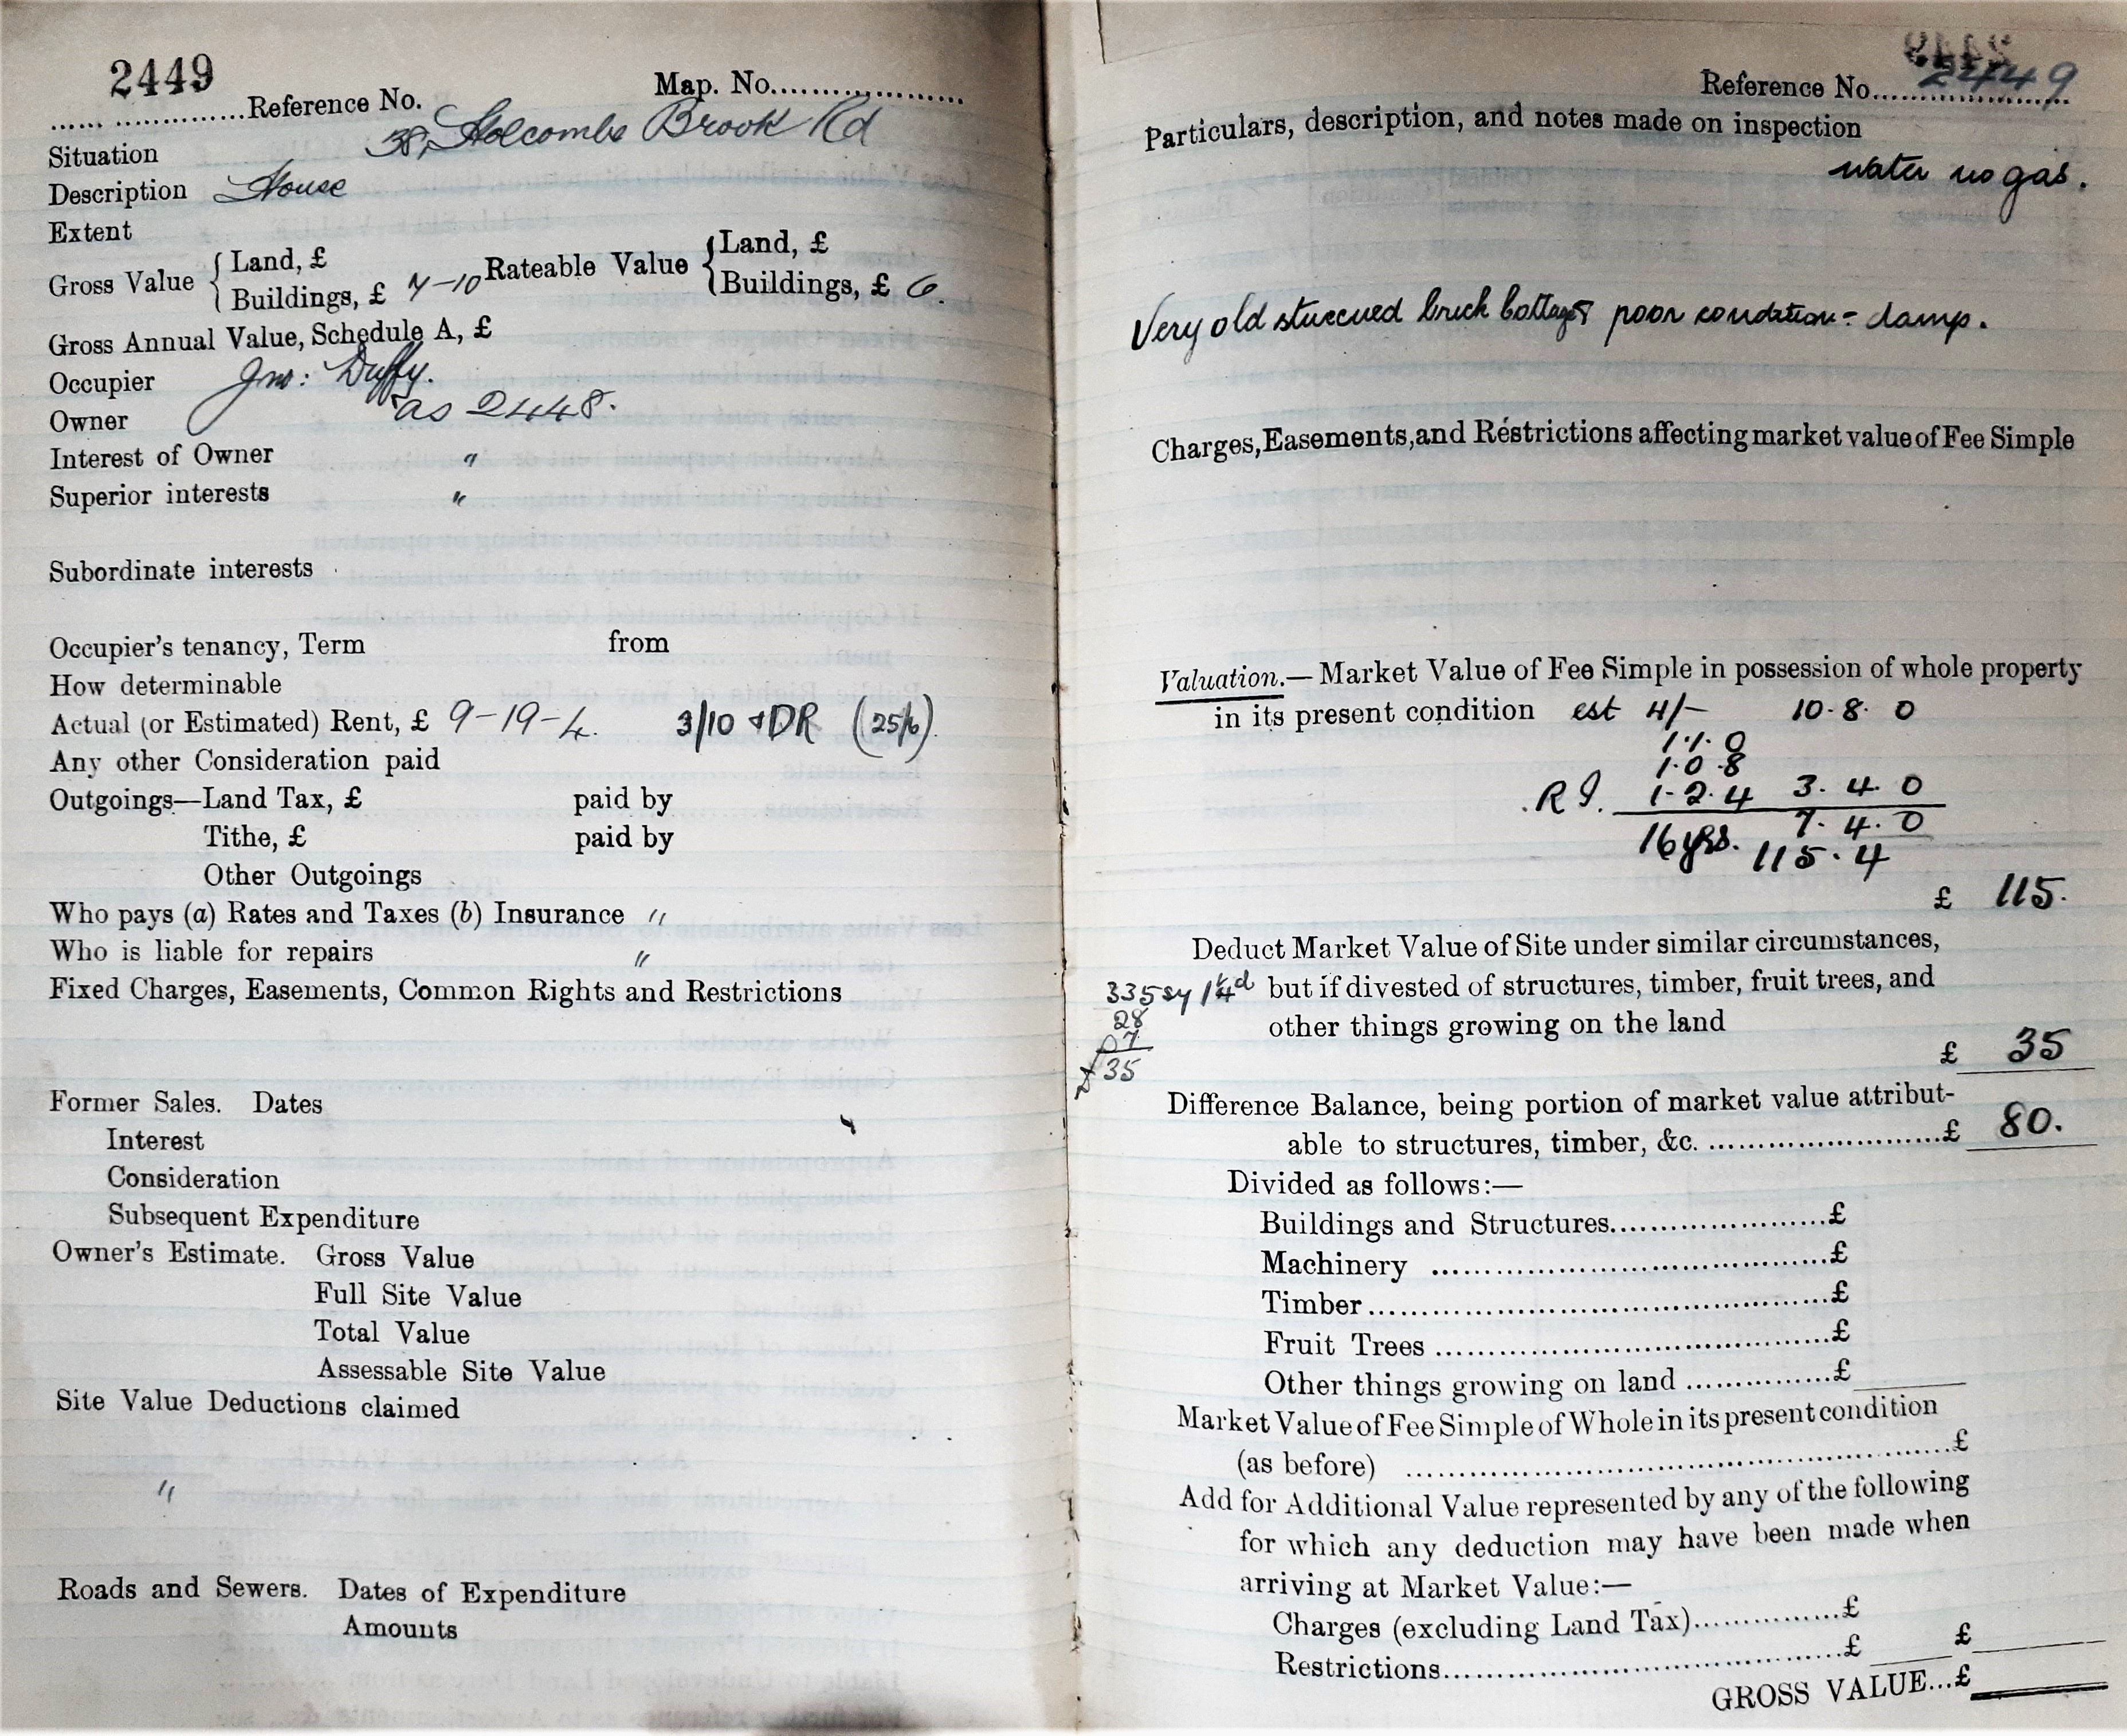 2449
...... ..............Reference No. Map. No.....................
Situation 38, Holcombe Brook Rd
Description House
Extent
Gross Value { Land, £ Rateable Value { Land, £
Buildings, £ 7-10 Buildings, £ 6.
Gross Annual Value, Schedule A, £
Occupier Jno: Duffy.
Owner as 2448.
Interest of Owner "
Superior interests "
Subordinate interests
Occupier's tenancy, Term from
How determinable
Actual (or Estimated) Rent, £ 9-19-4. 3/10 + DR (25/6).
Any other Consideration paid
Outgoings—Land Tax, £ paid by
Tithe, £ paid by
Other Outgoings
Who pays (a) Rates and Taxes (b) Insurance "
Who is liable for repairs "
Fixed Charges, Easements, Common Rights and Restrictions
Former Sales. Dates
Interest
Consideration
Subsequent Expenditure
Owner's Estimate. Gross Value
Full Site Value
Total Value
Assessable Site Value
Site Value Deductions claimed
"
Roads and Sewers. Dates of Expenditure
Amounts
Reference No. 2449
Particulars, description, and notes made on inspection
water no gas.
Very old stuccued brick cottages poor condition - damp.
Charges, Easements, and Restrictions affecting market value of Fee Simple
Valuation.— Market Value of Fee Simple in possession of whole property
in its present condition est 4/- 10.8.0
1.1.0
1.0.8
R I. 1-2.4 3.4.0
7.4.0
16 yrs. 115.4
£ 115.
Deduct Market Value of Site under similar circumstances,
335 sy 1¼d but if divested of structures, timber, fruit trees, and
28 other things growing on the land
07
£35 £ 35
Difference Balance, being portion of market value attribut-
able to structures, timber, &c. ........................£ 80.
Divided as follows:—
Buildings and Structures.....................£
Machinery .......................................£
Timber.............................................£
Fruit Trees .......................................£
Other things growing on land ..............£
Market Value of Fee Simple of Whole in its present condition
(as before) .....................................................£
Add for Additional Value represented by any of the following
for which any deduction may have been made when
arriving at Market Value:—
Charges (excluding Land Tax)..............£
Restrictions.......................................£ £
GROSS VALUE...£